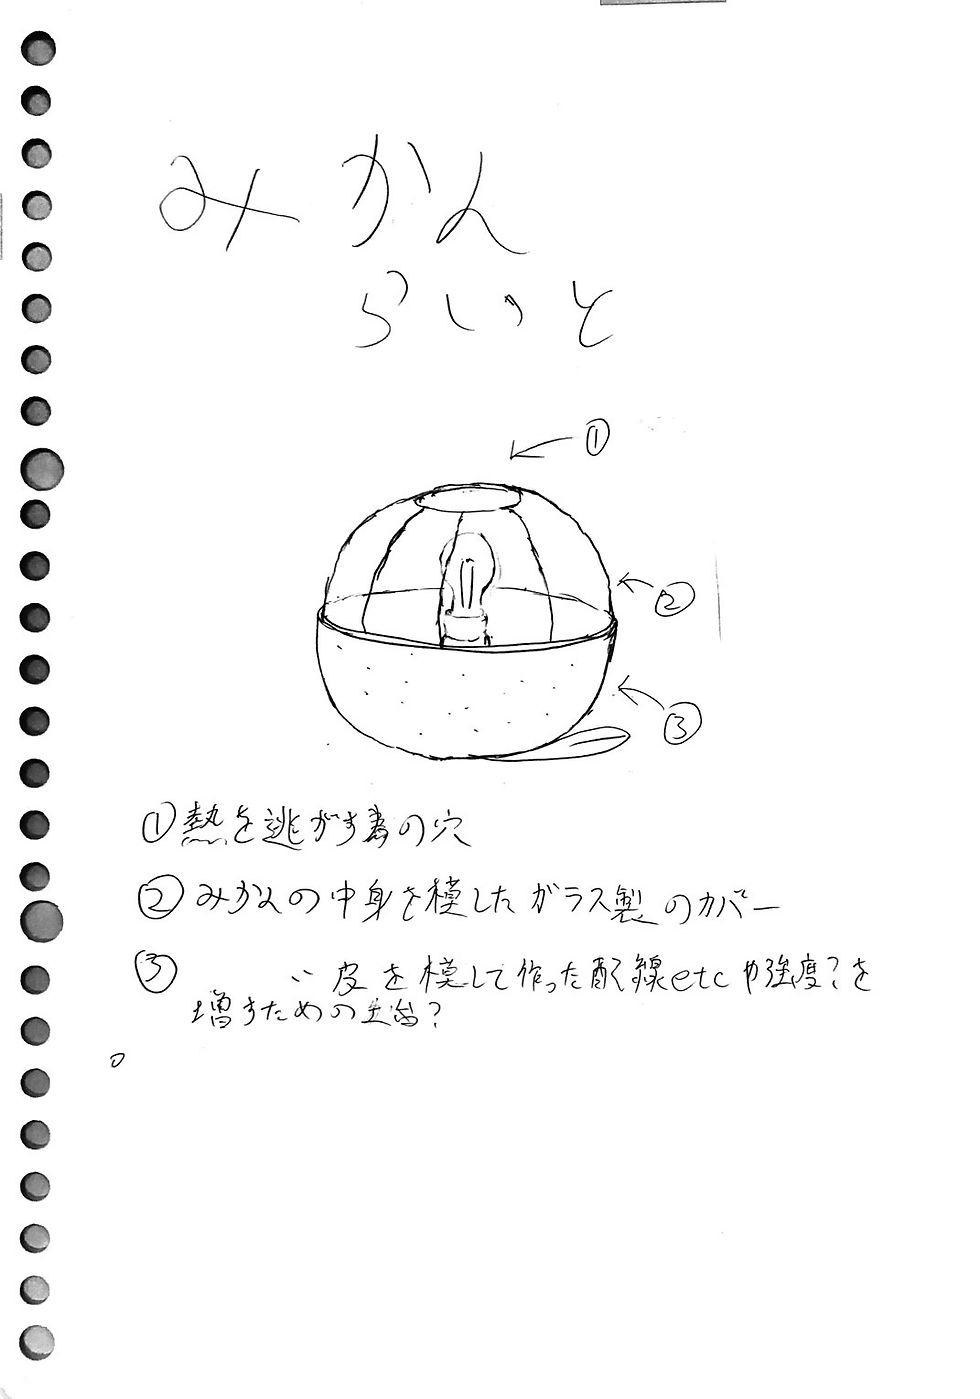 みかん
らいと
①
②
③
①熱を逃がす為の穴
②みかんの中身を模したガラス製のカバー
③ 〃 皮を模して作った配線etcや強度?を
増すための土台?